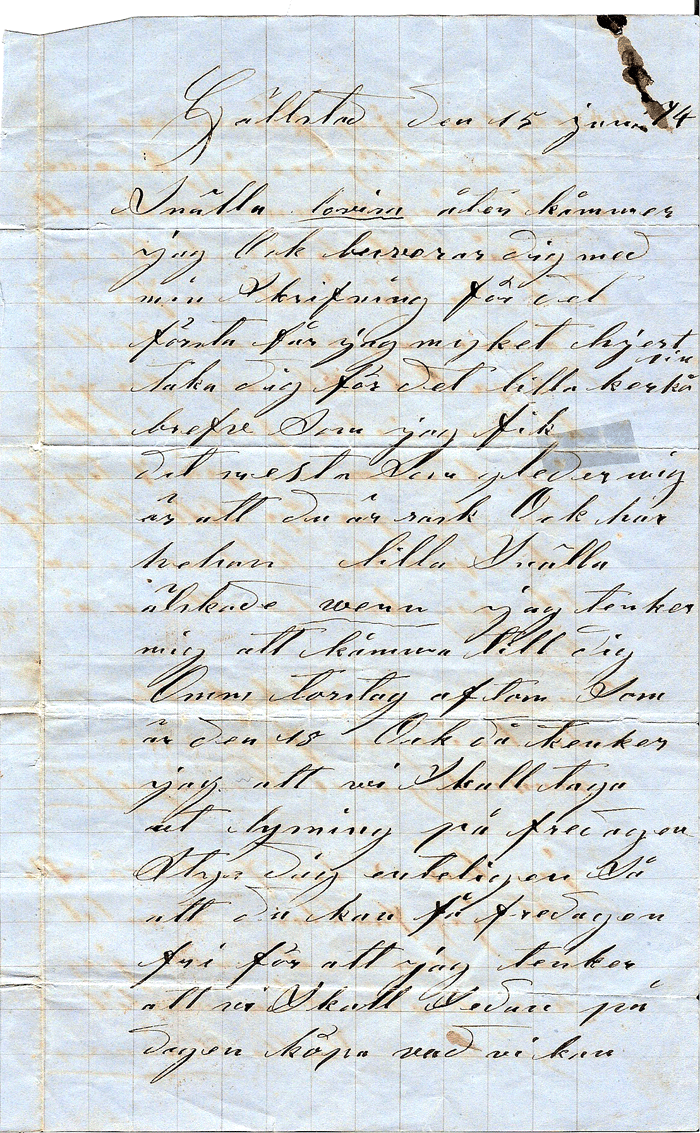 Gällstad den 15 juni 74
Snälla lovisa åter kåmmer
jag Ock besverar dig med
min Skrifning för det
första får jag myket hjert
sin
taka dig för det lilla kerkå
brefve Som jag fik
dit mesta Som gleder mig
är att du är rask Ock har
helsan lilla Snälla
älskade wenn jag tenker
mig att kåmma till dig
Omm torstag aftom Som
är den 18 Ock då tenker
jag att vi Skall taga
ut lysning på fredagen
Styr dig enteligen Så
att du kan få fredagen
fri för att jag tenker
att vi Skall Sedan på
dagen köpa vad vi kan